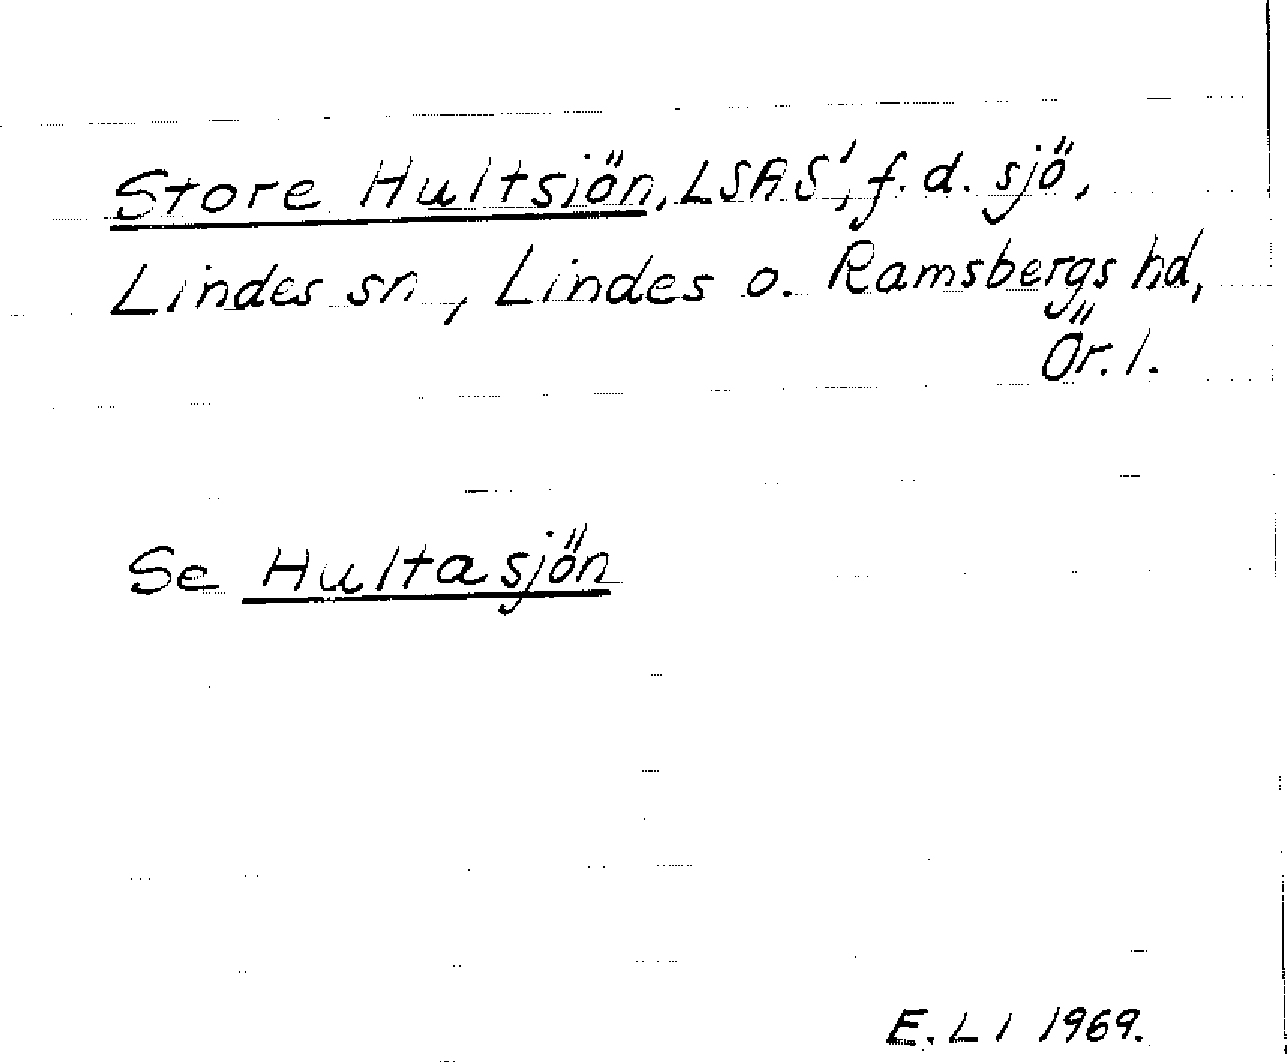 Store Hultsjön, LSAS', f.d. sjö,
Lindes sn, Lindes o. Ramsbergs hd,
Ör. l.
Se Hultasjön
E. Ll 1969.